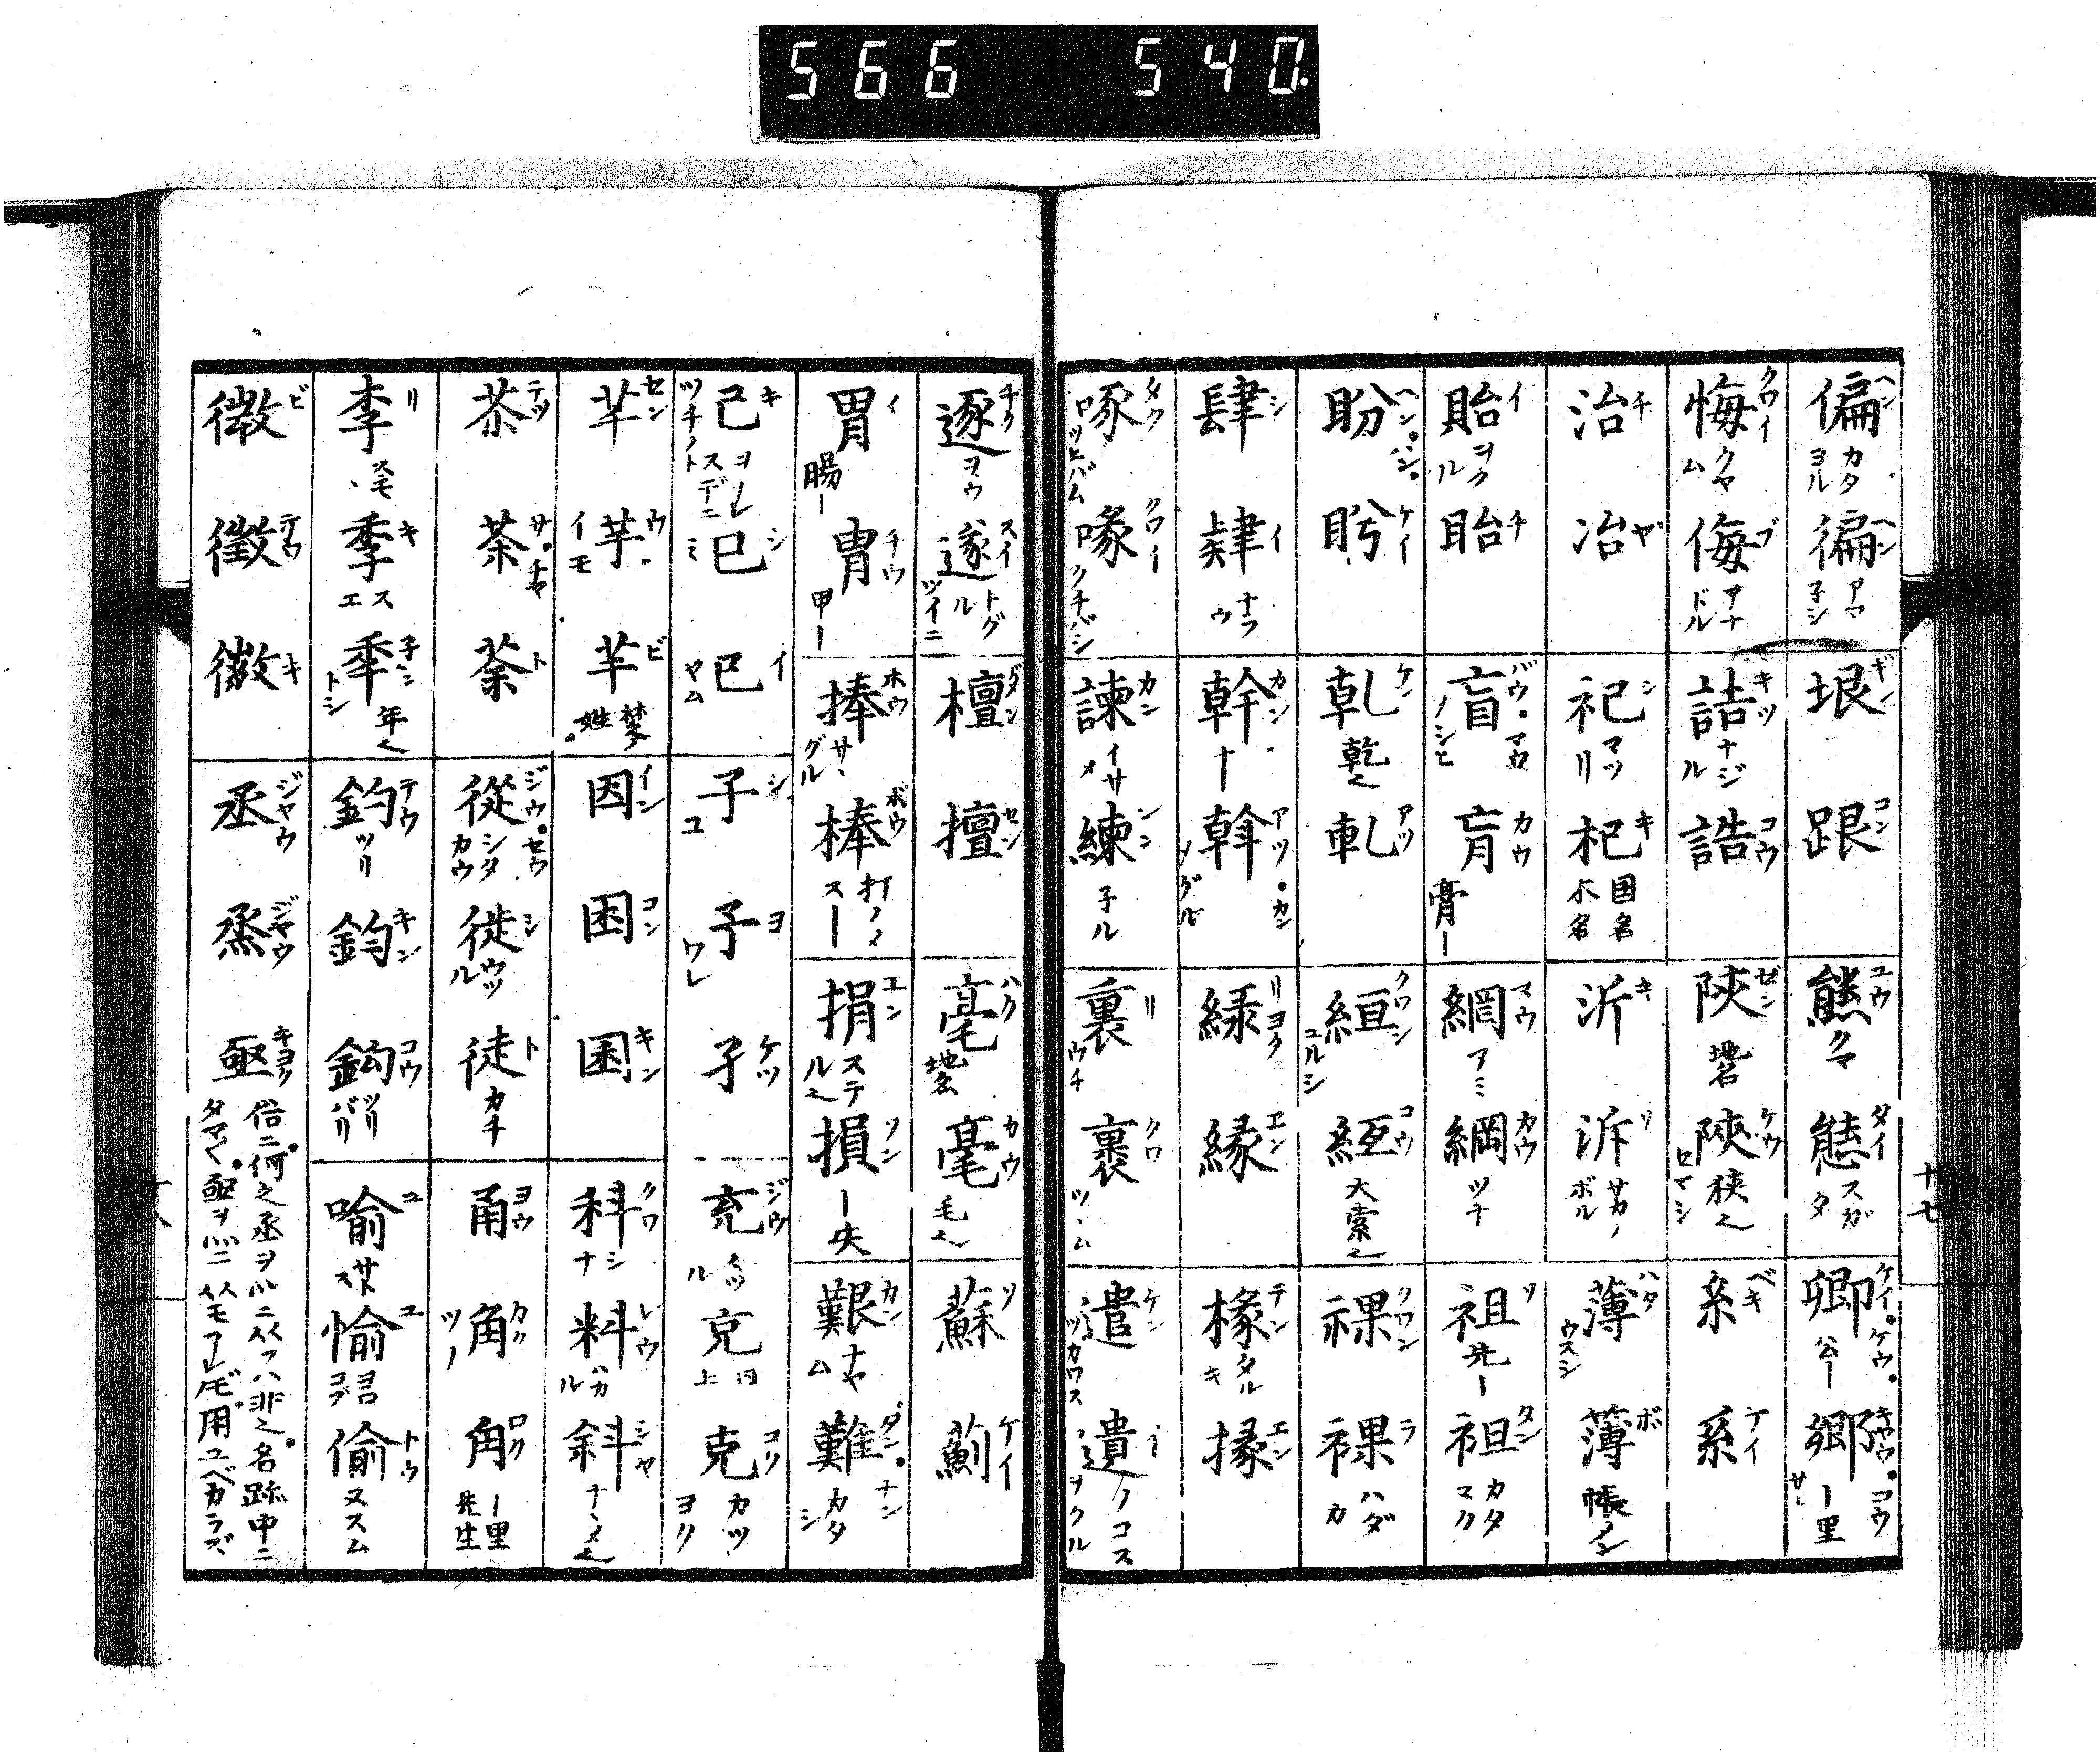 566 540.
偏 ヘン カタヨル 徧 ヘン アマ子シ 垠 ギン 跟 コン 熊 ユウ クマ 態 タイ スガタ 卿 ケイ。ケウ。 公ー 郷 キヤウ。コウ ー里 サト
悔 クワイ クヤム 侮 ブ アナドル 詰 キツ ナジル 誥 コウ 陝 ゼン 地名 陜 ケウ 狹也 セマシ 糸 ベキ 系 ケイ
治 チ 冶 ヤ 祀 シ マツリ 杞 キ 国名 木名 沂 キ 泝 ソ サカノボル 薄 ハク ウスシ 簿 ボ 帳ー
貽 イ ヲクル 眙 チ 盲 バウ。マウ メシヒ 肓 カウ 膏ー 網 マウ アミ 綱 カウ ツナ 祖 ソ 先ー 袒 タン カタマク
盼 ヘン。ハン。 盻 ケイ 乹 ケン 乾也 軋 アツ 絙 クワン ユルシ 緪 コウ 大索也 祼 クワン 裸 ラ ハダカ
肆 シ 肄 イ ナラウ 幹 カン ー 斡 アツ。カン メグル 緑 リヨク 縁 エン 椽 テン タルキ 掾 エン
啄 タク ツヒバム 喙 クワイ クチバシ 諫 カン イサメ 練 レン 子ル 裏 リ ウチ 裹 クワ ツヽム 遣 ケン ツカワス 遺 イ ノコス ヲクル
十七
逐 チク ヲウ 遂 スイ トグル ツイニ 檀 ダン 擅 セン 亳 ハク 地名 毫 カウ 毛也 蘇 ソ 薊 ケイ
胃 イ 腸ー 冑 チウ 甲ー 捧 ホウ サヽグル 棒 ボウ 打 捐 エン ステル也 損 ソン ー失 艱 カン ナヤム 難 ダン。ナン カタシ
己 キ ヲノレ ツチノト 已 スデニ 巳 シ ミ 已 イ ヤム 子 シ ユ 予 ヨ ワレ 孑 ケツ 充 ジウ 克 同上 克 コク カツ ヨク
芊 セン 芋 ウ イモ 芈 ビ 楚姓 因 イン 困 コン 囷 キン 科 クワ シナ 料 レウ ハカル 斜 シヤ ナヽメ也
苶 テツ 茶 サ。チヤ 荼 ト 從 ジウ。セウ シタカウ 徙 シ ウツル 徒 ト カチ 甬 ヨウ 角 カク ツノ 甪 ロク ー里先生
李 リ スモヽ 季 キ スエ 秊 子ン トシ 年也 釣 テウ ツリ 鈞 キン 鉤 コウ ツリバリ 喩 ユ サトス 愉 ユ ヨロコブ 偷 トウ ヌスム
微 ビ 徴 テウ 徽 キ 丞 ジヤウ 烝 ジヤウ 亟 キヨク 俗ニ何之丞ヲ灬ニ从フハ非之名跡中ニ
タマ〱亟ヲ灬ニ从モアレドモ用ユベカラズ